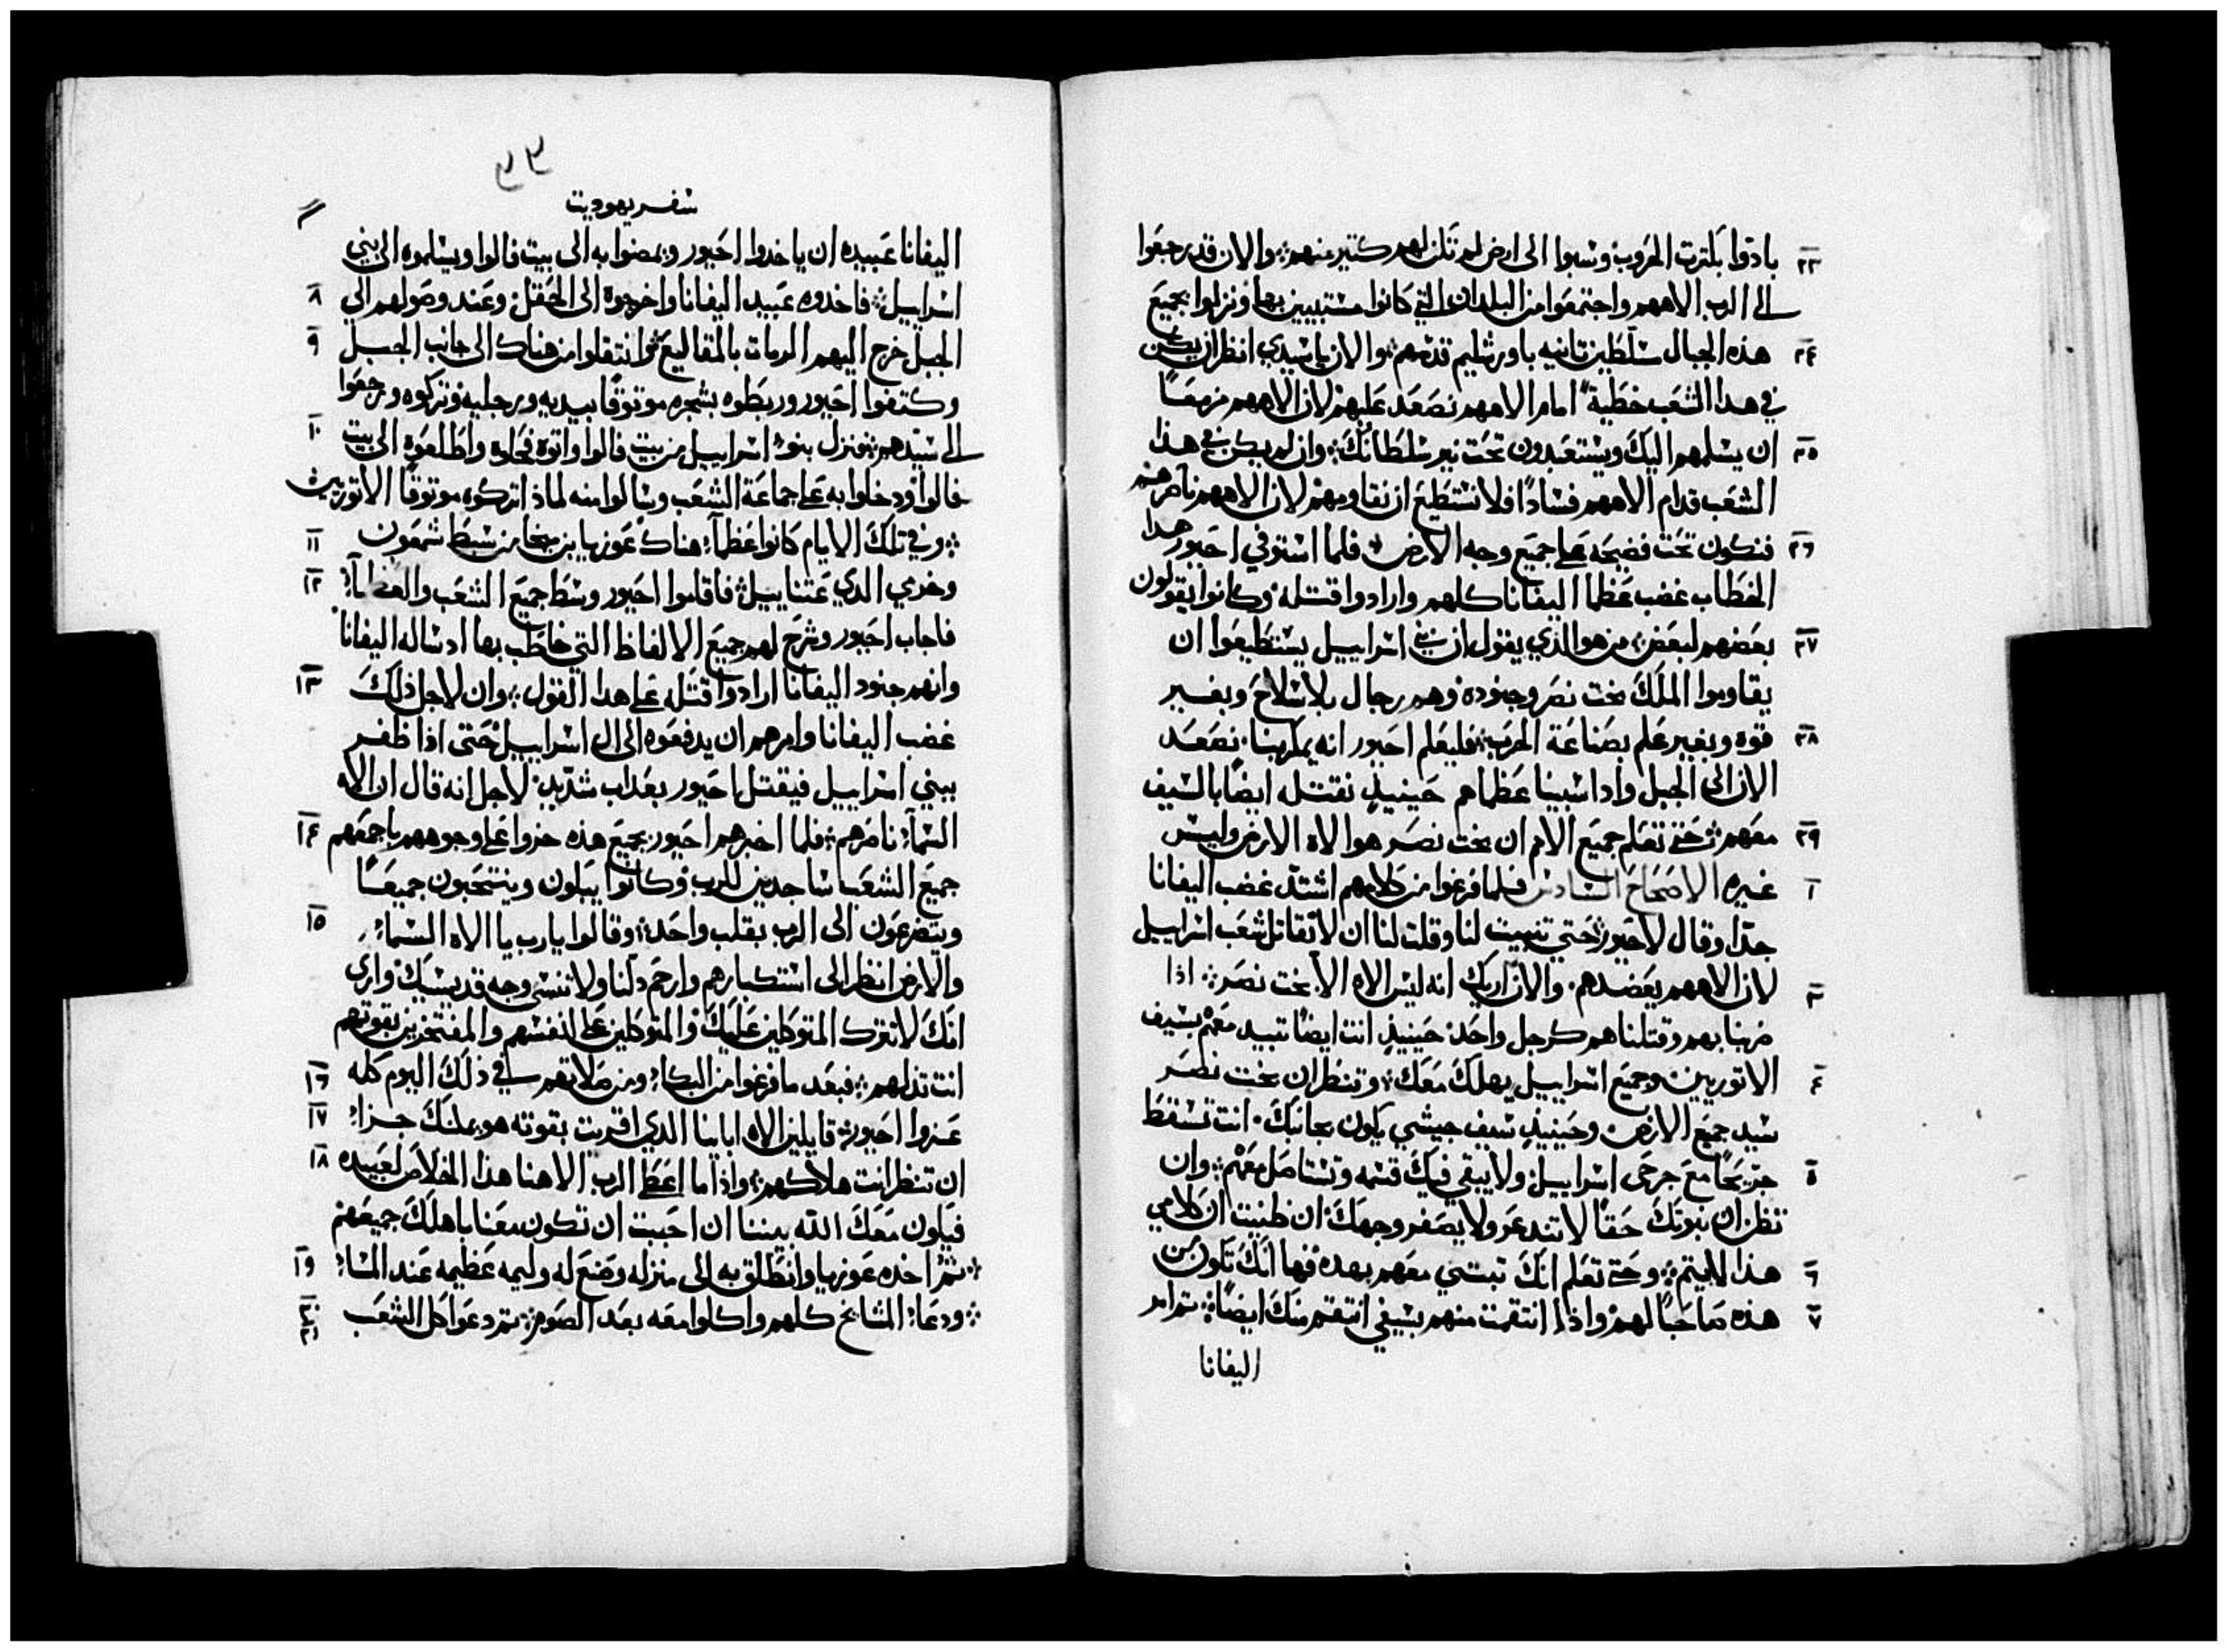 ٢٣ بادوا بكترت الحروب وسبوا الى ارض لم تكن لهم كتير منهم والان قد رجعوا
الى الرب الاههم واجتمعوا من البلدان التي كانوا مستبيين بها ونزلوا بجميع
٢٤ هذه الجبال سلطين تانيه باورشليم قدسهم والان يا سيدي انظر ان يكن
في هدا الشعب خطية امام الاههم نصعد عليهم لان الاههم مزمعًا
٢٥ ان يسلمهم اليك ويستعبدون تحت نير سلطانك وان لم يكن في هذا
الشعب قدام الاههم فسادًا فلا نستطيع ان نقاومهم لان الاههم ناصرهم
٢٦ فنكون تحت فضيحه على جميع وجه الارض فلما استوفي احيور هدا
الخطاب غضب عظما اليفانا كلهم وارادوا قتله وكانوا يقولون
٢٧ بعضهم لبعض من هو الدي يقول ان بني اسراييل يستطيعوا ان
يقاوموا الملك بخت نصر وجنوده وهم رجال بلا سلاح وبغير
٢٨ قوه وبغير علم بصناعة الحرب فليعلم احيور انه يمكر بنا نصعد
الان الى الجبل وادا سبينا عظماهم حينيذٍ نقتله ايضًا بالسيف
٢٩ معهم حتى تعلم جميع الامم ان بخت نصر هو الاه الارض وليس
١ غيره الاصحاح السادس فلما فرغوا من كلامهم اشتد غضب اليفانا
جدًا وقال لاحيور حتي تنبيت لنا وقلت لنا ان لا نقاتل شعب اسراييل
٣ لان الاههم يعضدهم والان اريك انه ليس الاه الا بخت نصر ادا
ضربنا بهم وقتلناهم كرجل واحد حينيذٍ انت ايضًا تبيد معهم بسيف
٤ الاتوريين وجميع اسراييل يهلك معك وتنظر ان بخت نصر
سيد جميع الارض وحينيذٍ سيف جيشي يكون بجانبك انت تسقط
٥ جريحًا مع جرحى اسراييل ولا يبقي فيك قسمه وتستاصل معهم وان
تظن ان نبوتك حقًا لا تندعر ولا يصفر وجهك ان ظنيت ان كلامي
٦ هذا لا يتم وحتى تعلم انك تبتلي معهم بهده فها انك تكون من
٧ هذه صاحبًا لهم واذا انتقمت منهم بسيفي انتقم منك ايضًا ثم امر
اليفانا
٢٣
سفر يهوديت
اليفانا عبيده ان ياخدوا احيور ويمضوا به الى بيت فالوا ويسلموه الى بني
اسراييل فاخدوه عبيد اليفانا واخرجوه الى الحقل وعند وصولهم الي ٨
الجبل خرج اليهم الرمات بالمقاليع ثم انتقلوا من هناك الى جانب الجبل ٩
وكتفوا احيور وربطوه بشجره موتوقًا بيديه ورجليه وتركوه ورجعوا
الى سيدهم فنزل بنو اسراييل من بيت فالوا واتوه فحلوه واطلعوه الى بيت ١٠
فالوا ودخلوا به على جماعة الشعب وسالوا منه لماذا تركوه موتوقًا الاتوريين
وفي تلك الايام كانوا عظمآ هناك عوزيا بن ميخا من سبط شمعون ١١
وخرمي الدي عتناييل فاقاموا احيور وسط جميع الشعب والعظمآ ١٢
فاجاب احيور وشرح لهم جميع الالفاظ التي خاطب بها اد ساله اليفانا
وانهم جنود اليفانا ارادوا قتله على هدا القول وان لاجل ذلك ١٣
غضب اليفانا وامرهم ان يدفعوه الى ال اسراييل حتى اذا ظفر
ببني اسراييل فيقتل احيور بعداب شديد لاجل انه قال ان الاه
السمآ ناصرهم فلما اخبرهم احيور بجميع هذه خروا على وجوههم باجمعهم ١٤
جميع الشعب ساجدين للرب وكانوا يبكون وينتحبون جميعًا
ويتضرعون الى الرب بقلب واحد وقالوا يارب يا الاه السماء ١٥
والارض انظر الى استكبارهم وارحم ذلنا ولا تنسى وجه قديسيك واري
انك لا تترك المتوكلين عليك والمتوكلين على انفسهم والمفتخرين بقوتهم
انت تذلهم فبعد ما فرغوا من البكاء ومن صلاتهم في ذلك اليوم كله ١٦
عزوا احيور قايلين الاه اباينا الدي اقريت بقوته هو يمنحك جزاء ١٧
ان تنظر انت هلاكهم واذا ما اعطى الرب الاهنا هذا الخلاص لعبيده ١٨
فيكون معك الله بيننا ان احببت ان تكون معنا باهلك جميعهم
ثم اخده عوزيا وانطلق به الى منزله وصنع له وليمه عظيمه عند المساء ١٩
ودعا المشايخ كلهم واكلوا معه بعد الصوم ثم دعوا كل الشعب ٢٠ ٢١